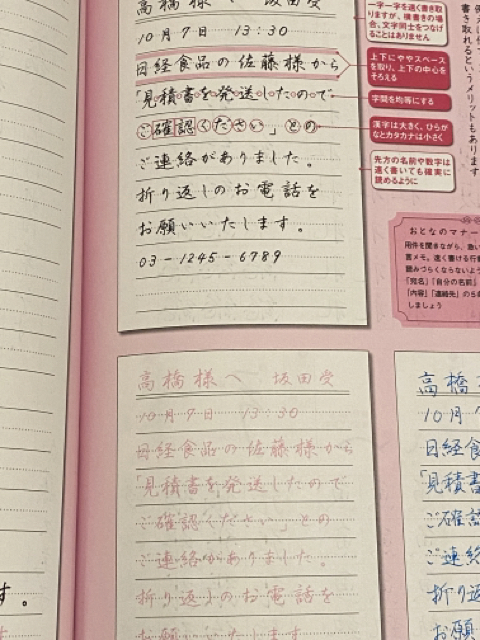 高橋様へ 坂田受
10月9日 13:30
日経食品の佐藤様から
「見積書を発送したので
ご確認ください」との
ご連絡がありました。
折り返しのお電話を
お願いいたします。
03-1245-6789
一字一字を速く書き取
りますが、横書きの場
合、文字同士をつなげ
ることはありません
上下にややスペース
を取り、上下の中心を
そろえる
字間を均等にする
漢字は大きく、ひらが
なとカタカナは小さく
先方の名前や数字は
速く書いても確実に
読めるように
書き取れるというメリットもあります
おとなのマナー
用件を聞きながら、急い
「宛名」「自分の名前」
「内容」「連絡先」の5
しましょう
高橋様へ 坂田受
10月9日 13:30
日経食品の佐藤様から
「見積書を発送したので
ご確認ください」との
ご連絡がありました。
折り返しのお電話を
お願いいたします
高橋
10月
日経食
「見積書
ご確認
ご連絡
折り返
お願い
す。